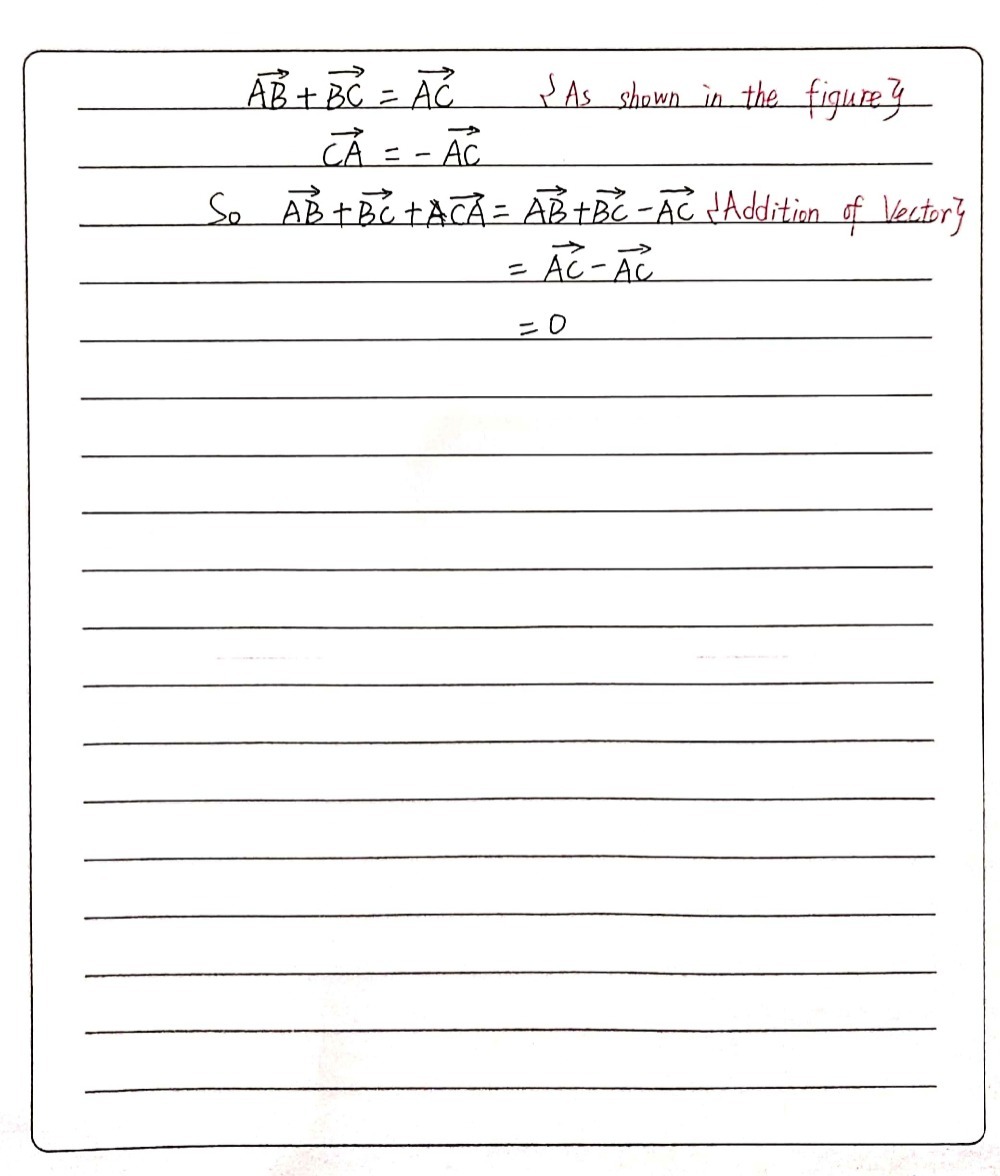 $\overrightarrow{AB} + \overrightarrow{BC} = \overrightarrow{AC}$ {As shown in the figure}
$\overrightarrow{CA} = -\overrightarrow{AC}$
So $\overrightarrow{AB} + \overrightarrow{BC} + \overrightarrow{CA} = \overrightarrow{AB} + \overrightarrow{BC} - \overrightarrow{AC}$ {Addition of Vector}
$= \overrightarrow{AC} - \overrightarrow{AC}$
$= 0$